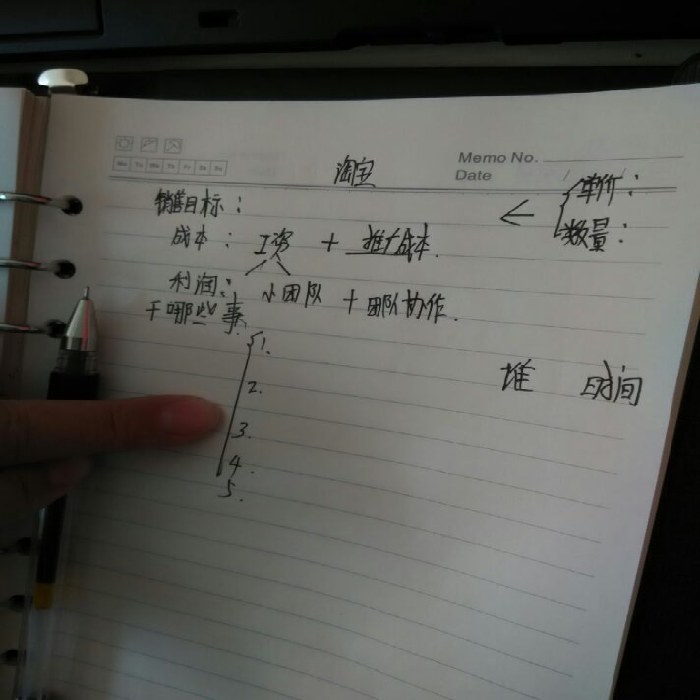 Memo No.
Mo Tu We Th Fr Sa Su
Date
淘宝
销售目标：
← { 单价：
数量：
成本：工资 + 推广成本.
利润：
小团队 + 团队协作.
干哪些事
1.
2.
3.
4.
5.
堆 时间